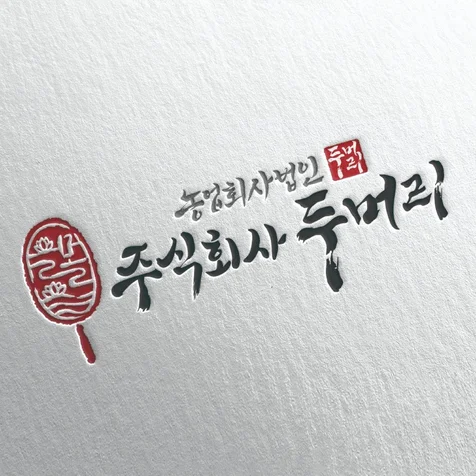 농업회사법인 두머리
주식회사 두머리